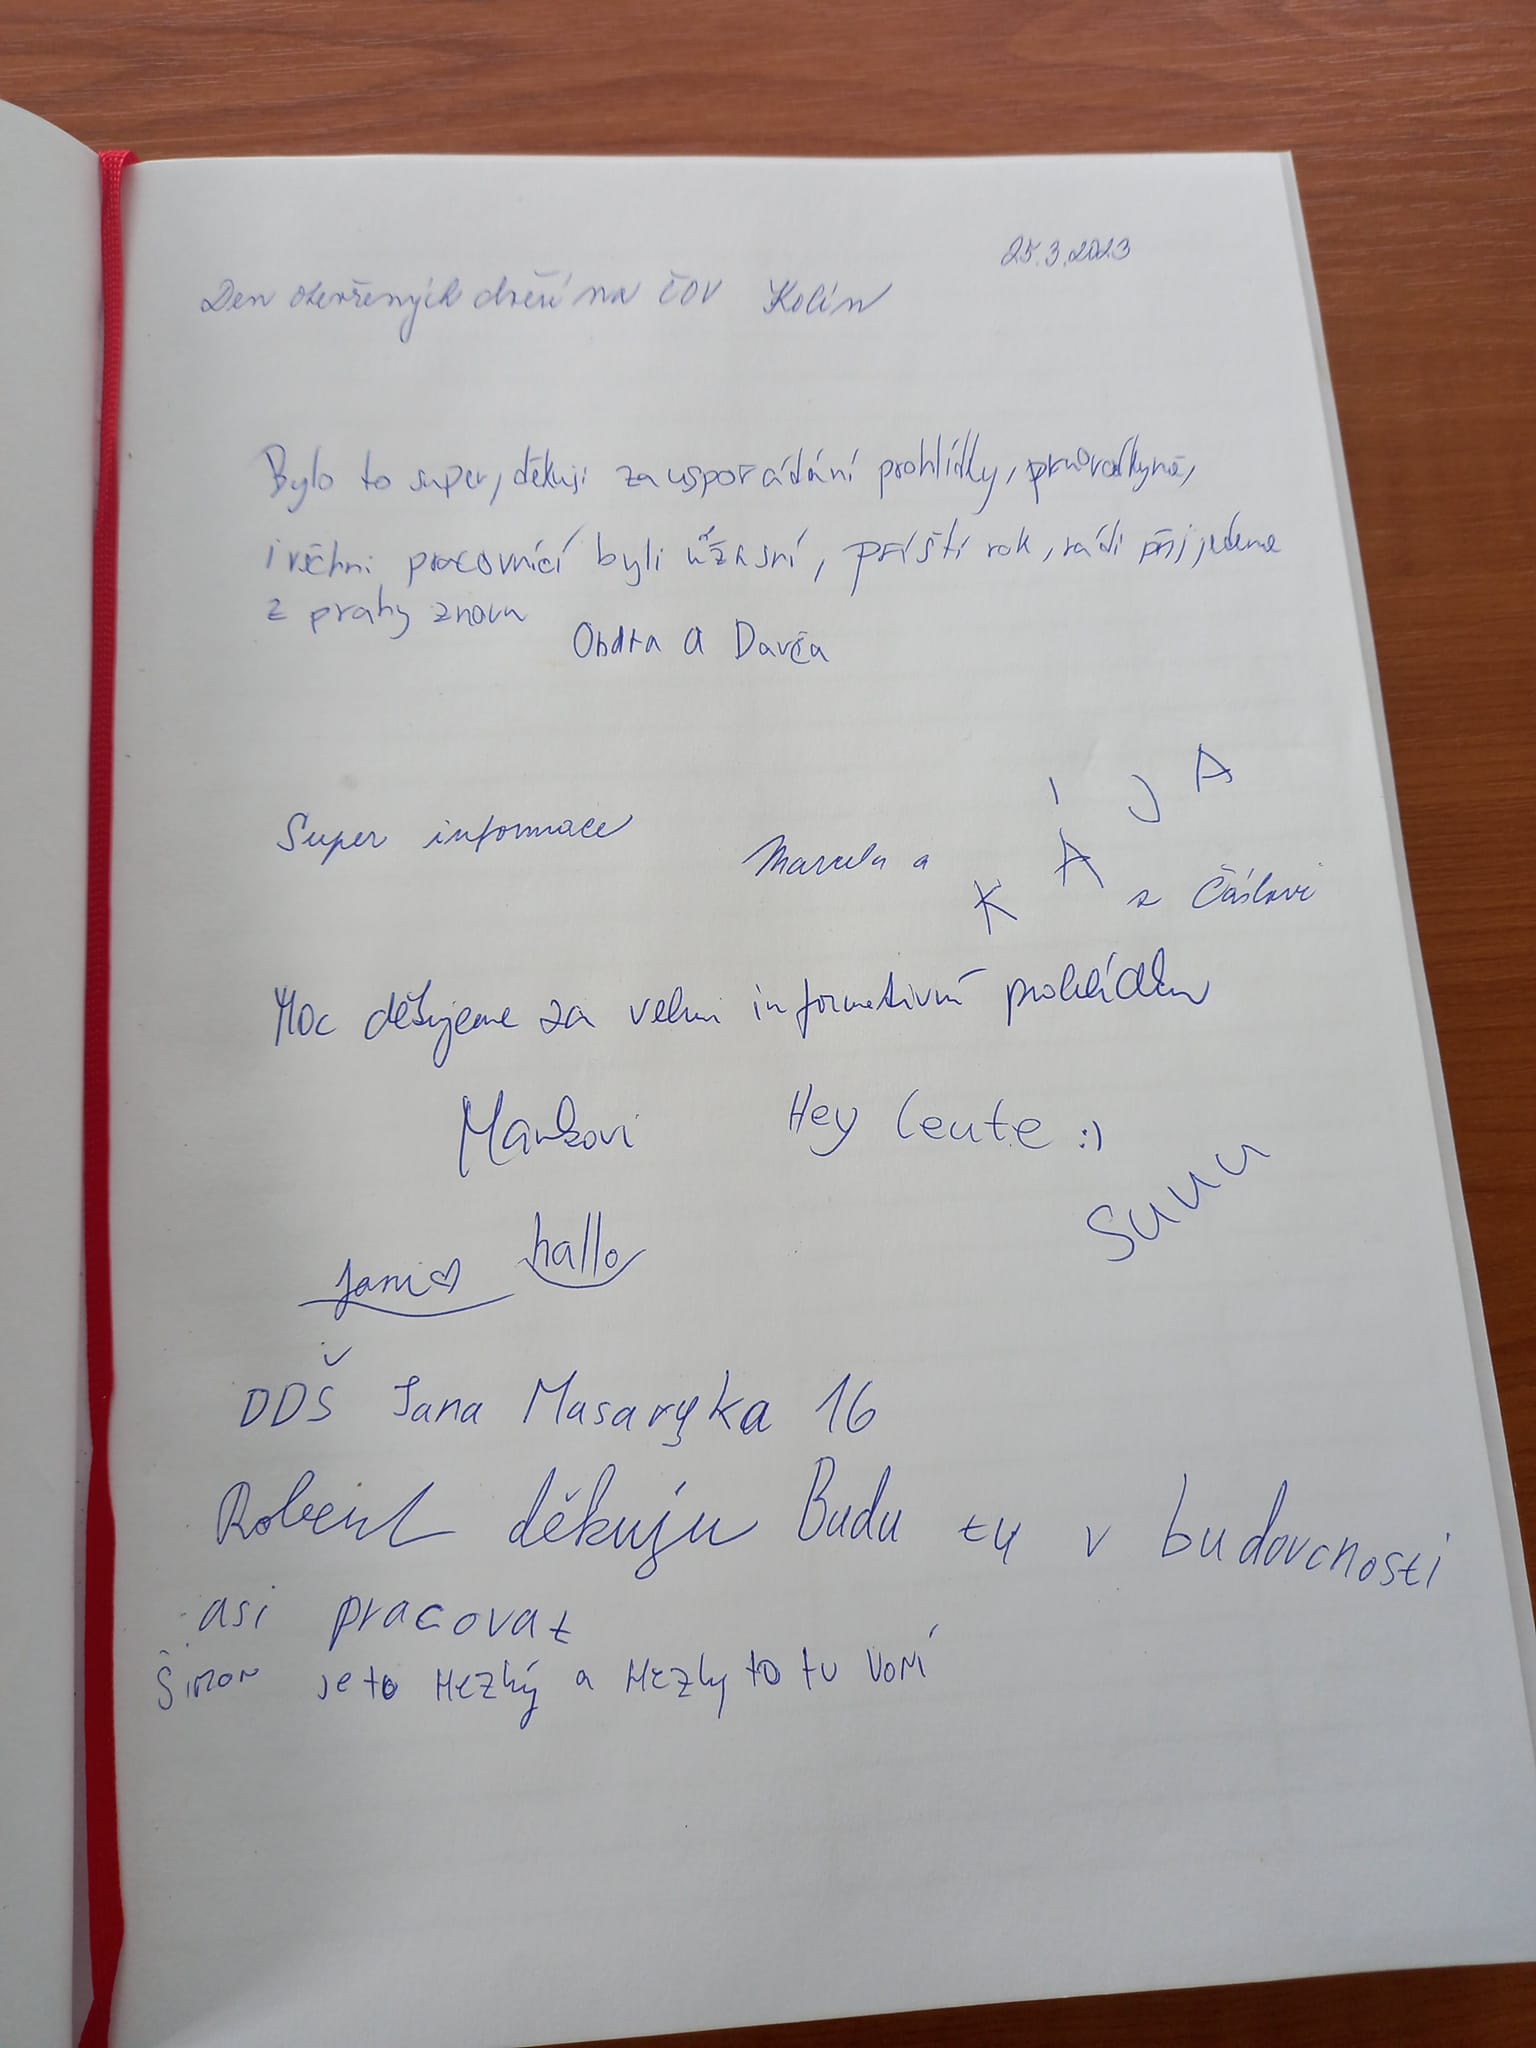 25.3.2023
Den otevřených dveří na ČOV Kolín
Bylo to super, děkuji za uspořádání prohlídky, průvodkyně,
i všchni pracovníci byli úžasní, příští rok, rádi přijedeme
z prahy znovu
Ondra a Davča
Super informace
Marcela a KÁJA z Čáslavi
Moc děkujeme za velmi informativní prohlídku
Hey leute :)
hallo
Jani♡
DDŠ Jana Masaryka 16
Robert děkuju Budu ty v budovcnosti
asi pracovat
Šimon je to Hezký a Hezky to tu voní